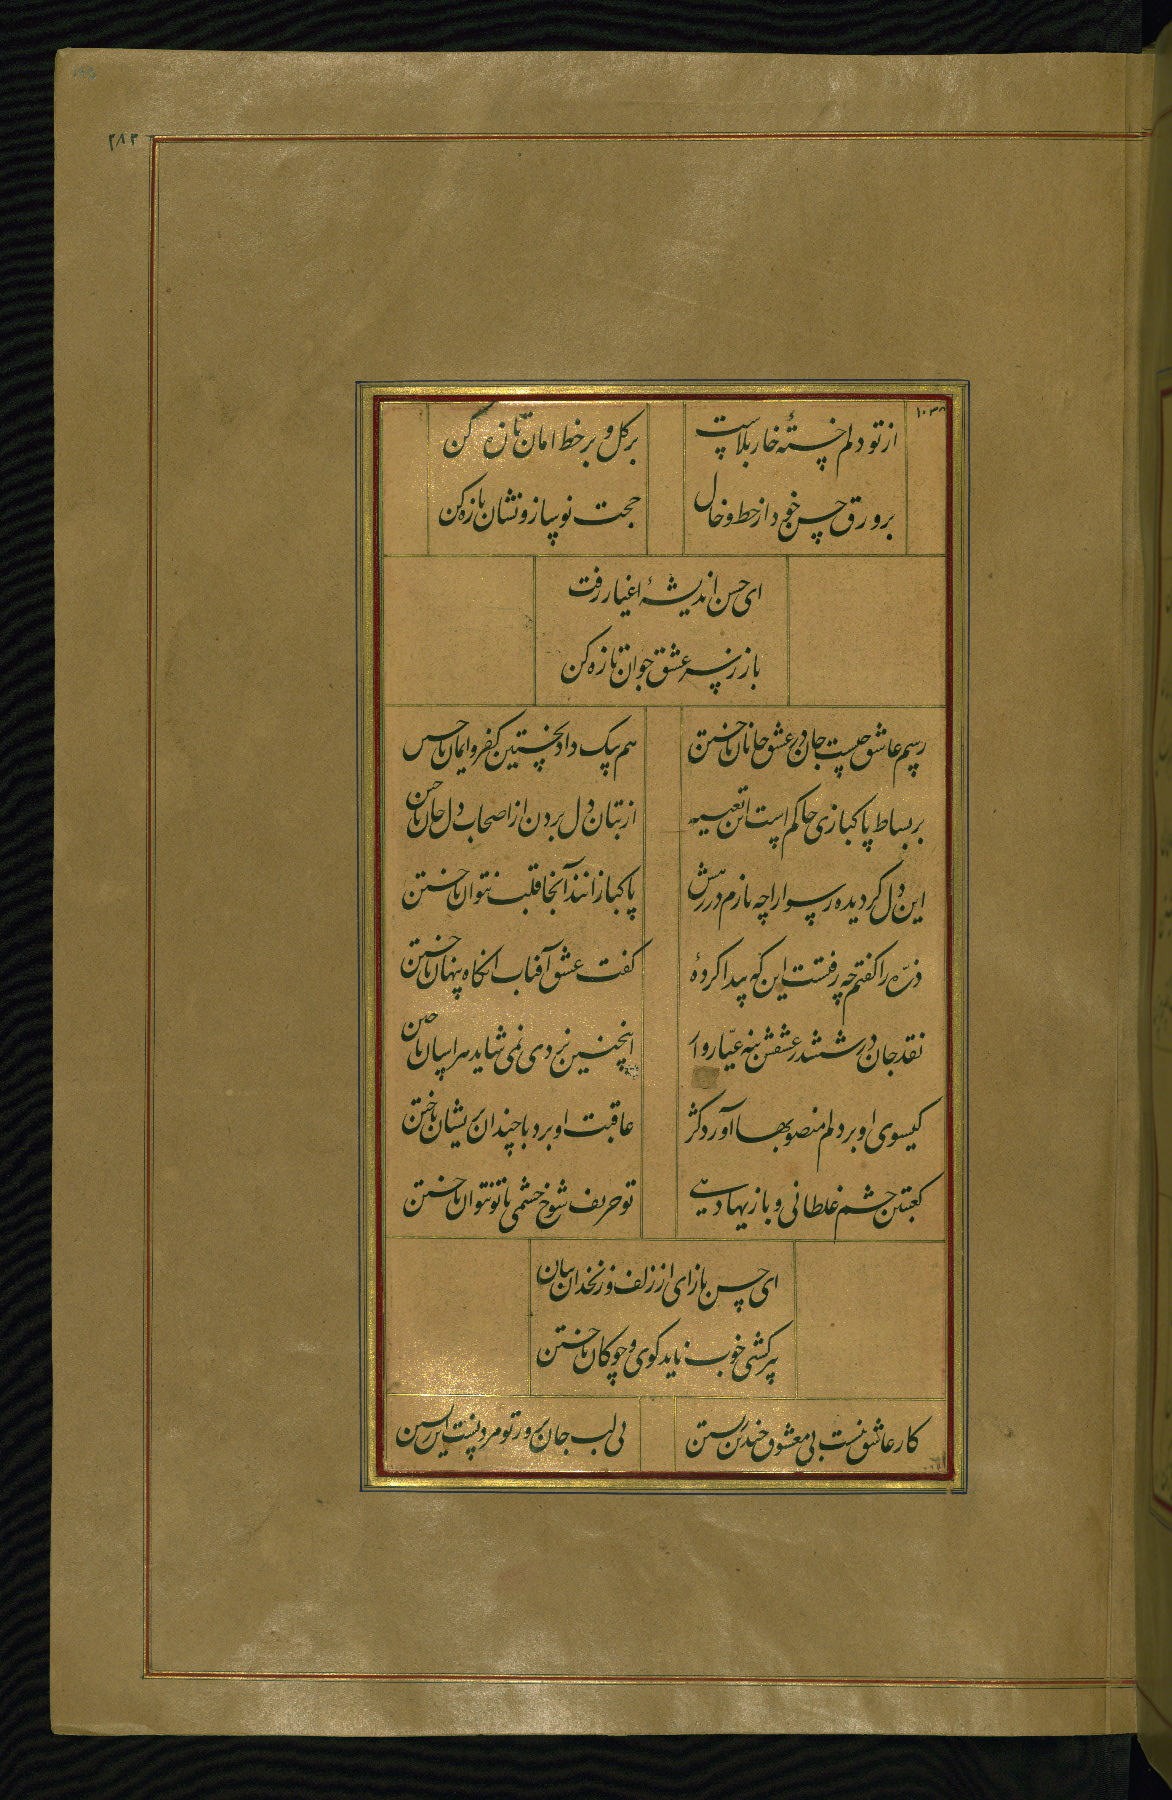 ۲۸۳
۱۰۳۸
از تو دلم خستهٔ خار بلاست
بر گل و بر خط امان تازه کن
بر ورق حسن خود از خط و خال
حجت نو ساز و نشان تازه کن
ای حسن اندیشهٔ اغیار رفت
باز ز سر عشق جوان تازه کن
رسم عاشق چیست جان در عشق جانان باختن
هم یک داد نخستین کفر و ایمان باختن
بر بساط پاکبازی حاکم است این تعبیه
از بتان دل بردن از اصحاب دل جان باختن
این دل گردیده رسوا را چه بازم در رهش
پاکبازانند آنجا قلب نتوان باختن
ذرّه را گفتم چه رفتست این که پیدا کردهٔ
گفت عشق آفتاب انگاه پنهان باختن
نقد جان در ششدر عشقش بنه عیّاروار
اینچنین نردی نمی شاید هراسان باختن
گیسوی او بر دلم منصوبها آورد کژ
عاقبت او برد با چندان پریشان باختن
کعبتین چشم غلطانی و بازیها دهی
تو حریف شوخ چشمی با تو نتوان باختن
ای حسن باز ای از زلف و زنخدان بتان
سرکشی خوب ناید گوی و چوگان باختن
کار عاشق نیست بی معشوق خندان زیستن
بی لب جان پرور تو مردنست این زیستن